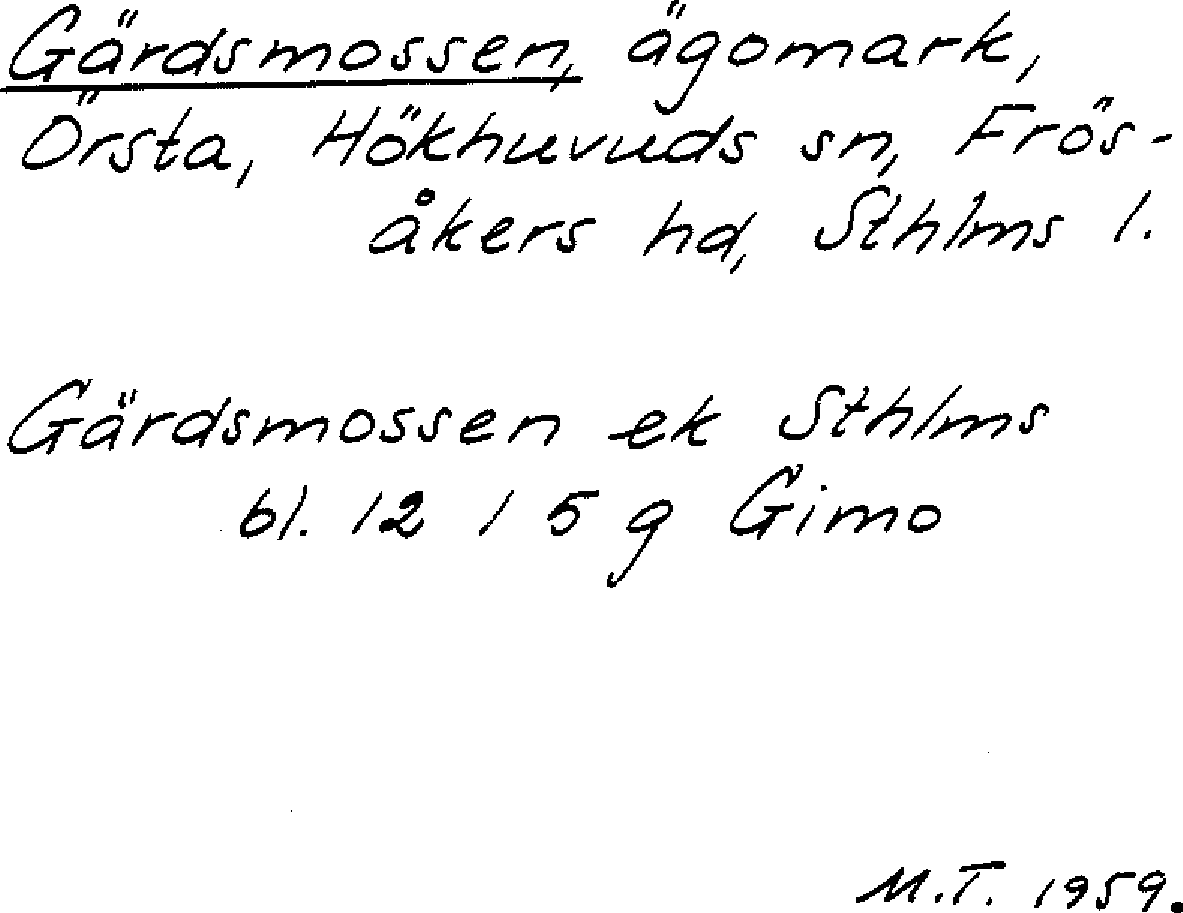 Gärdsmossen, ägomark,
Örsta, Hökhuvuds sn, Frös-
åkers hd, Sthlms l.
Gärdsmossen ek Sthlms
bl. 12 I 5 g Gimo
M.T. 1959.